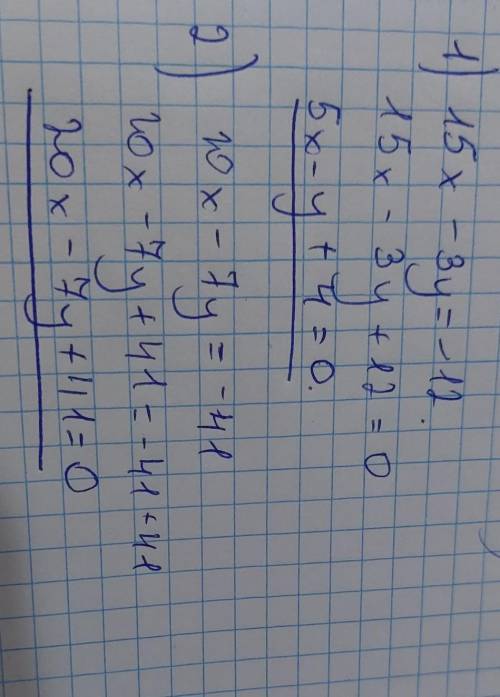 1) 15x - 3y = -12.
15x - 3y + 12 = 0
5x - y + 4 = 0.
2) 20x - 7y = -41
20x - 7y + 41 = -41 + 41
20x - 7y + 41 = 0